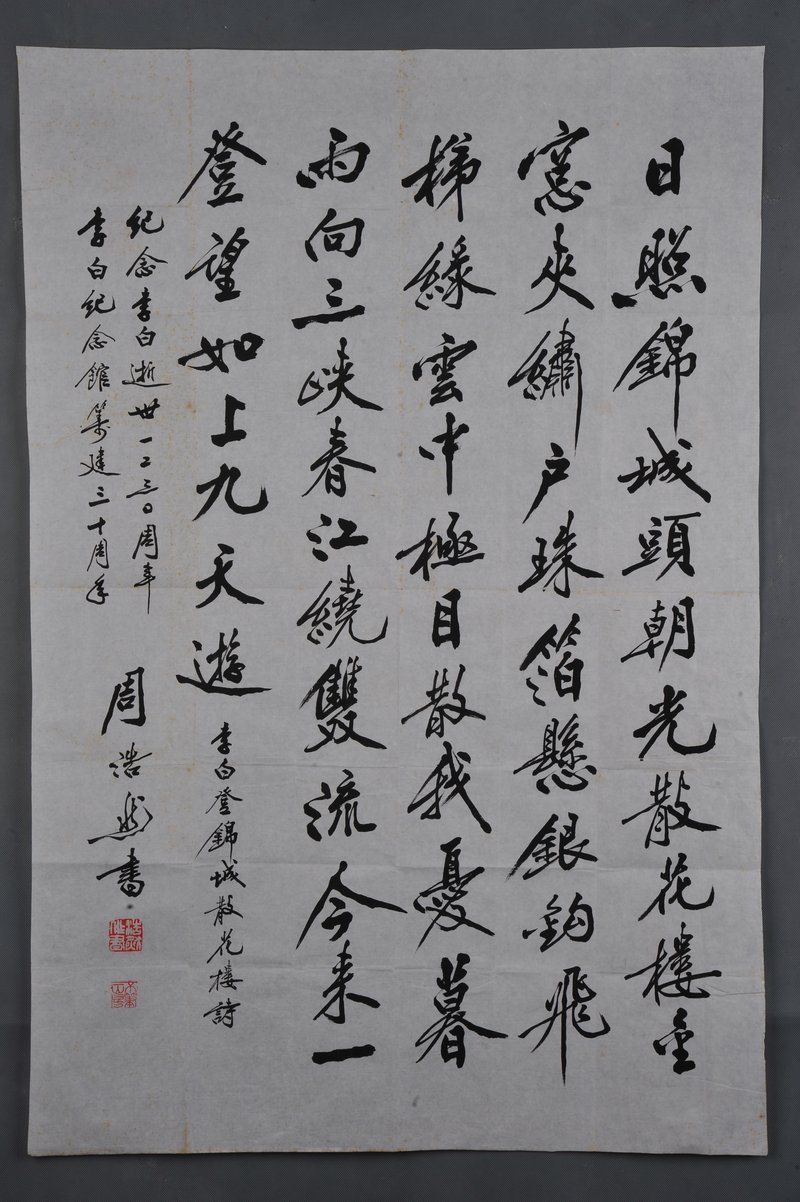 日照錦城頭朝光散花樓金
窓夾繡戶珠箔懸銀鈎飛
梯緑雲中極目散我憂暮
雨向三峽春江繞雙流今来一
登望如上九天遊
李白登錦城散花樓詩
紀念李白逝世一二三〇周年
李白紀念館籌建三十周年
周浩然書